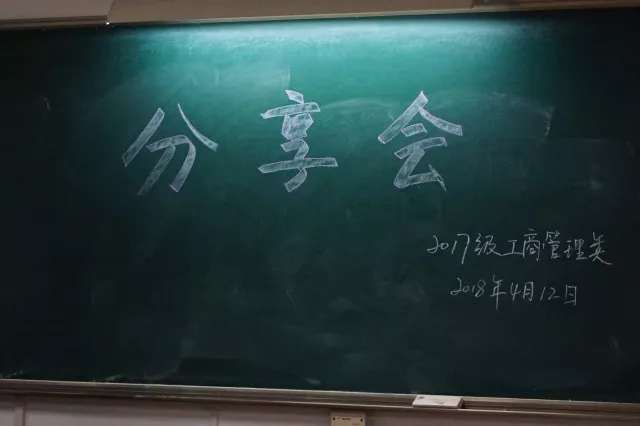 分享会
2017级工商管理类
2018年4月12日